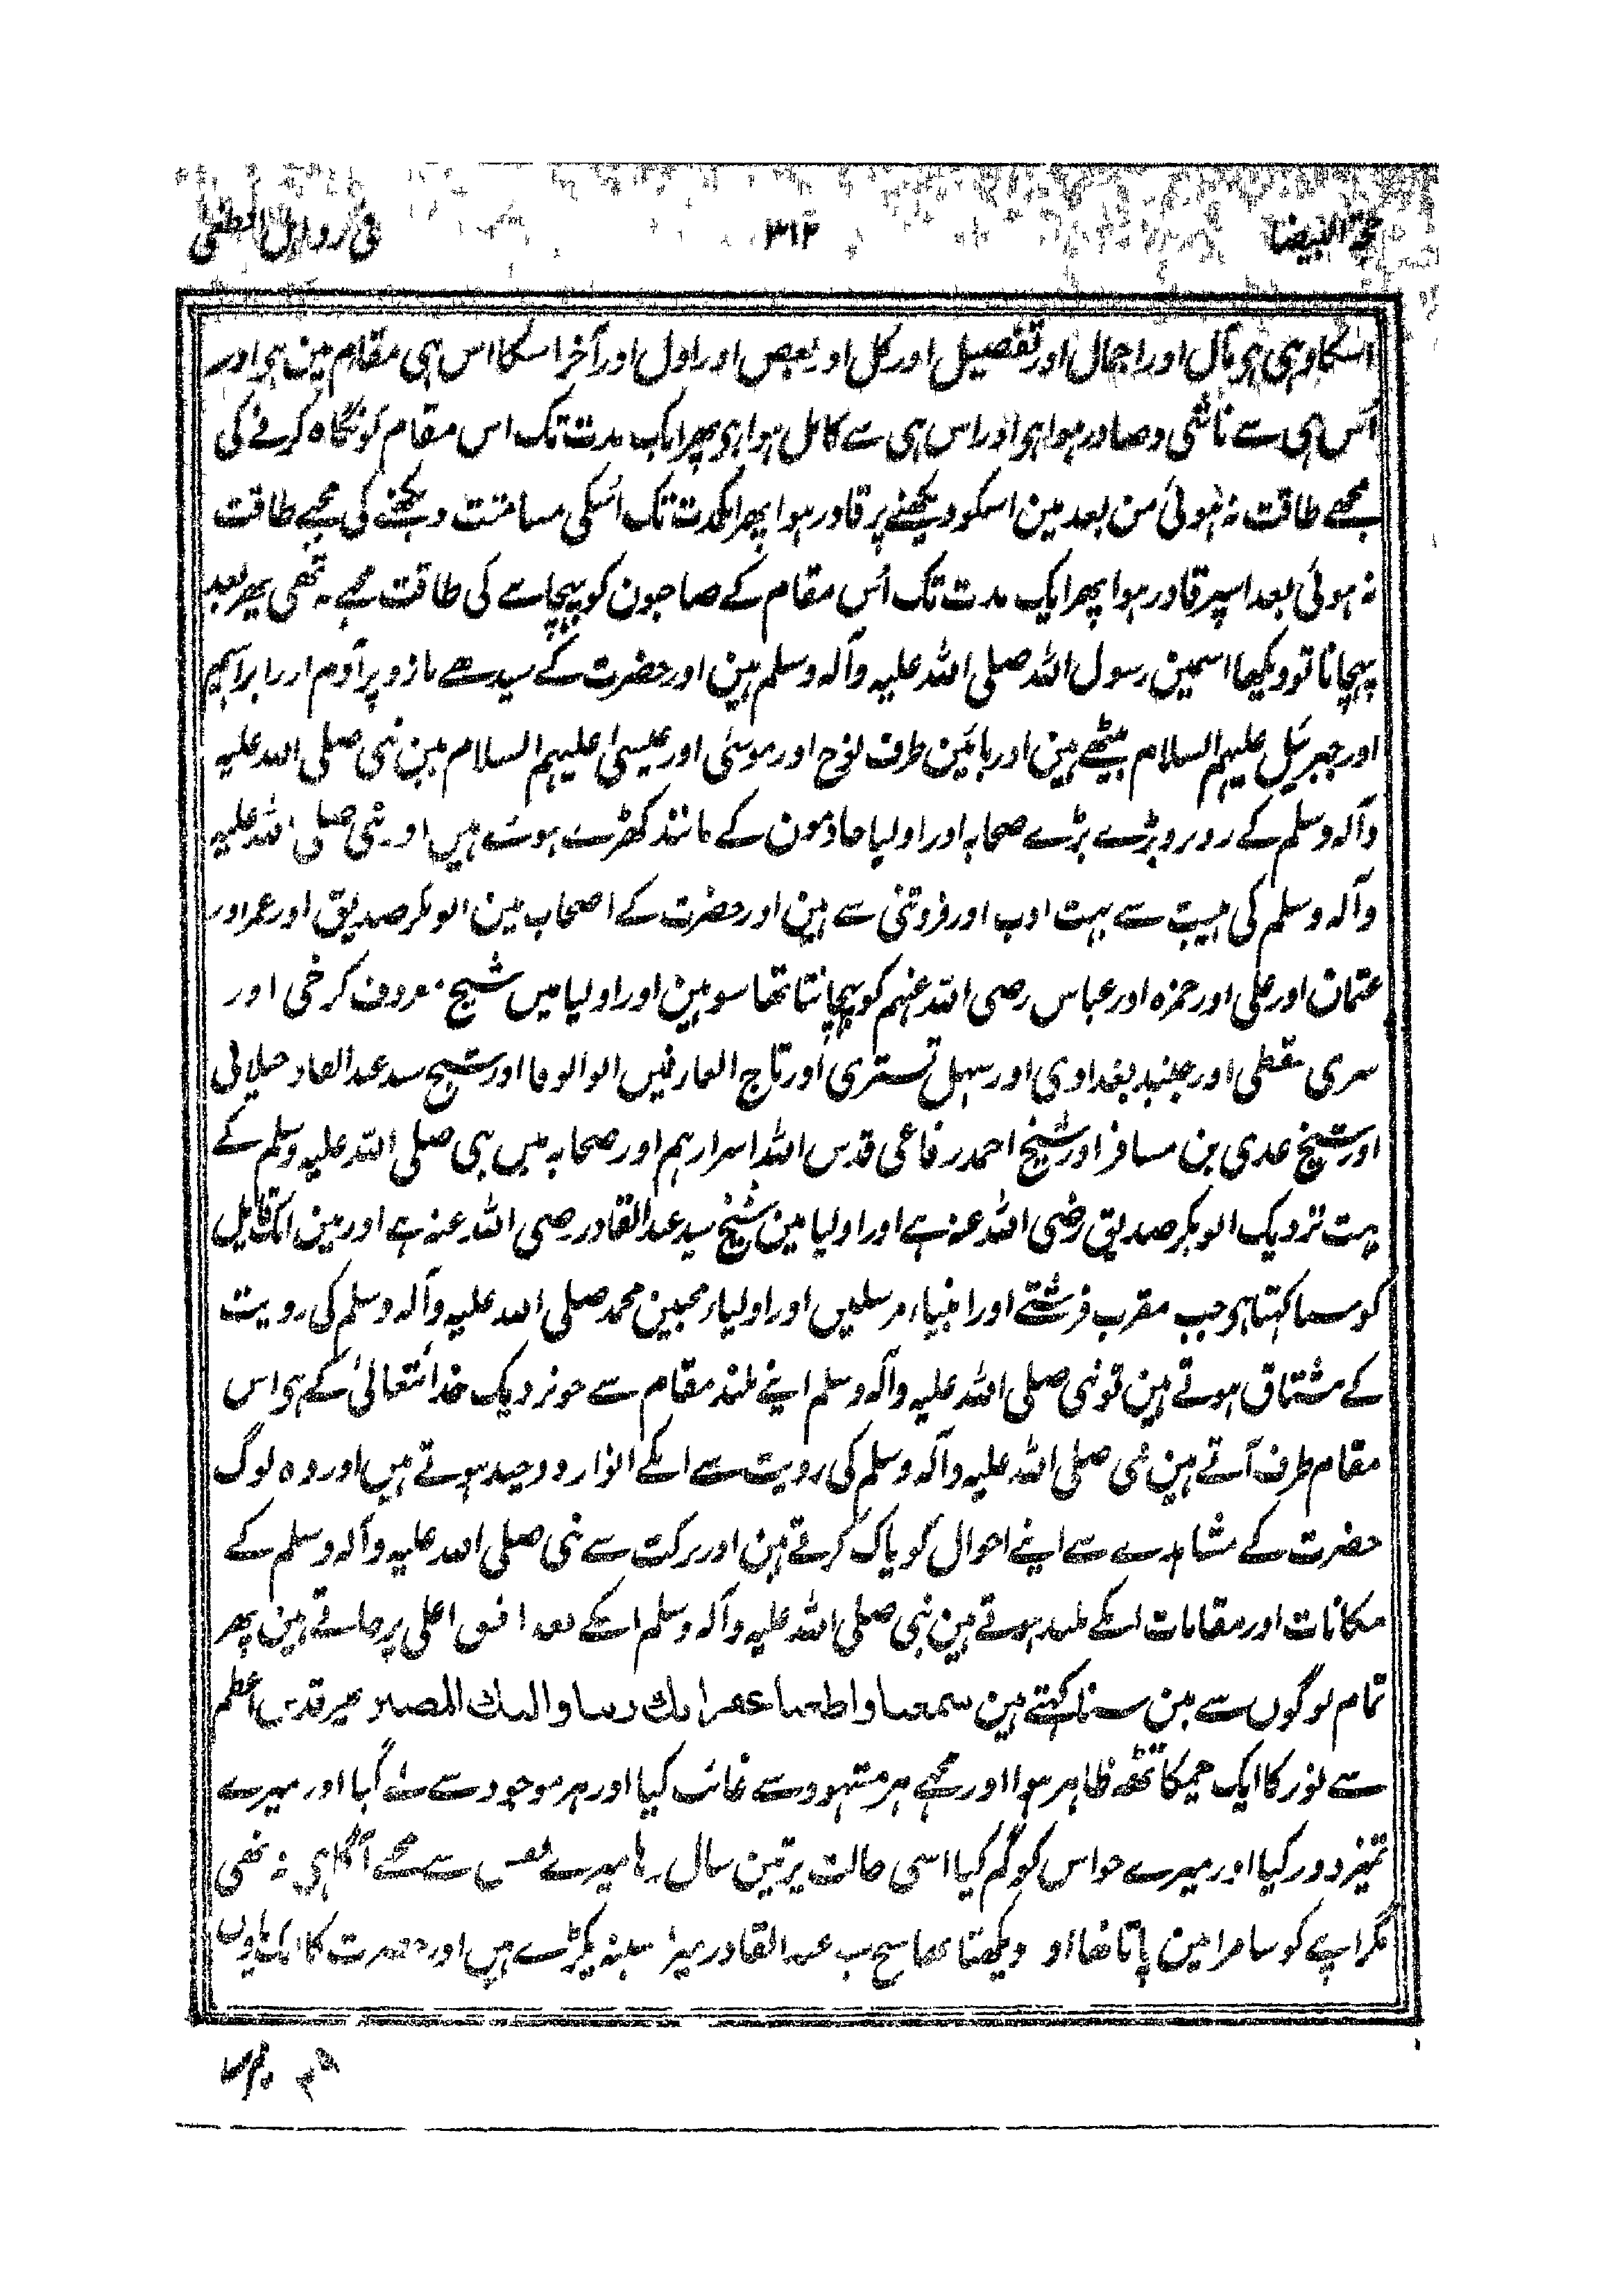 ۳۱۳
اسکا وہی ہی مآل اور اجمال اور تفصیل اور کل اور بعض اور اول اور آخر اسکا اس ہی مقام مین ہی اور
اُس ہی سے ناشی و صادر ہوا ہی اور اس ہی سے کامل ہوا ہی پھر ایک مدت تک اس مقام کو نگاہ کرنے کی
مجھے طاقت نہ ہوئی من بعد مین اسکو دیکھنے پر قادر ہوا پھر ایکمدت تک اُسکی مسامتت دیکھنے کی مجھے طاقت
نہ ہوئی بعد اسپر قادر ہوا پھر ایک مدت تک اُس مقام کے صاحبون کو پہچاننے کی طاقت مجھے نہ تھی پھر بعد
پہچانا تو دیکھا اسمین رسول اللہ صلی اللہ علیہ وآلہ وسلم ہین اور حضرت کے سیدھے بازو پر آدم اور ابراہیم
اور جبرئیل علیہم السلام بیٹھے ہین اور بائین طرف نوح اور موسیٰ اور عیسیٰ علیہم السلام ہین نبی صلی اللہ علیہ
وآلہ وسلم کے روبرو بڑے بڑے صحابہ اور اولیا خادمون کے مانند کھڑے ہوئے ہیں اور نبی صلی اللہ علیہ
وآلہ وسلم کی ہیبت سے بہت ادب اور فروتنی سے ہین اور حضرت کے اصحاب مین ابوبکر صدیق اور عمر اور
عثمان اور علی اور حمزہ اور عباس رضی اللہ عنہم کو پہچانتا تھا سو ہین اور اولیا میں شیخ معروف کرخی اور
سری سقطی اور جنید بغدادی اور سہل تستری اور تاج العارفین ابو الوفا اور شیخ سید عبد القادر جیلانی
اور شیخ عدی بن مسافر اور شیخ احمد رفاعی قدس اللہ اسرارہم اور صحابہ میں نبی صلی اللہ علیہ وسلم کے
بہت نزدیک ابوبکر صدیق رضی اللہ عنہ ہے اور اولیا مین شیخ سید عبد القادر رضی اللہ عنہ ہے اور مین ایک قایل
کو سنا کہتا ہی جب مقرب فرشتے اور انبیاء مرسلیں اور اولیاء محبین محمد صلی اللہ علیہ وآلہ وسلم کی رویت
کے مشتاق ہوتے ہین تو نبی صلی اللہ علیہ وآلہ وسلم اپنے بلند مقام سے جو نزدیک خدا تعالیٰ کے ہی اس
مقام طرف آتے ہین نبی صلی اللہ علیہ وآلہ وسلم کی رویت سے اُنکے انوار دوچند ہوتے ہیں اور وہ لوگ
حضرت کے مشاہدے سے اپنے احوال کو پاک کرتے ہین اور برکت سے نبی صلی اللہ علیہ وآلہ وسلم کے
مکانات اور مقامات اُنکے بلند ہوتے ہین نبی صلی اللہ علیہ وآلہ وسلم اسکے بعد افق اعلی پر جاتے ہین پھر
تمام لوگوں سے مین سنا کہتے ہین سمعنا واطعنا غفرانك ربنا واليك المصير پھر قدس اعظم
سے نور کا ایک چمکا ظاہر ہوا اور مجھے ہر مشہود سے غائب کیا اور ہر موجود سے لے گیا اور میرے
تمیز دور کیا اور میرے حواس کو گم کیا اسی حالت پر تین سال رہا میرے نفس سے مجھے آگاہی نہ تھی
مگر اپنے کو سامرا مین پاتا تھا اور دیکھتا تھا شیخ عبد القادر میرا سینہ پکڑے ہیں اور حضرت کا ایک پاوں